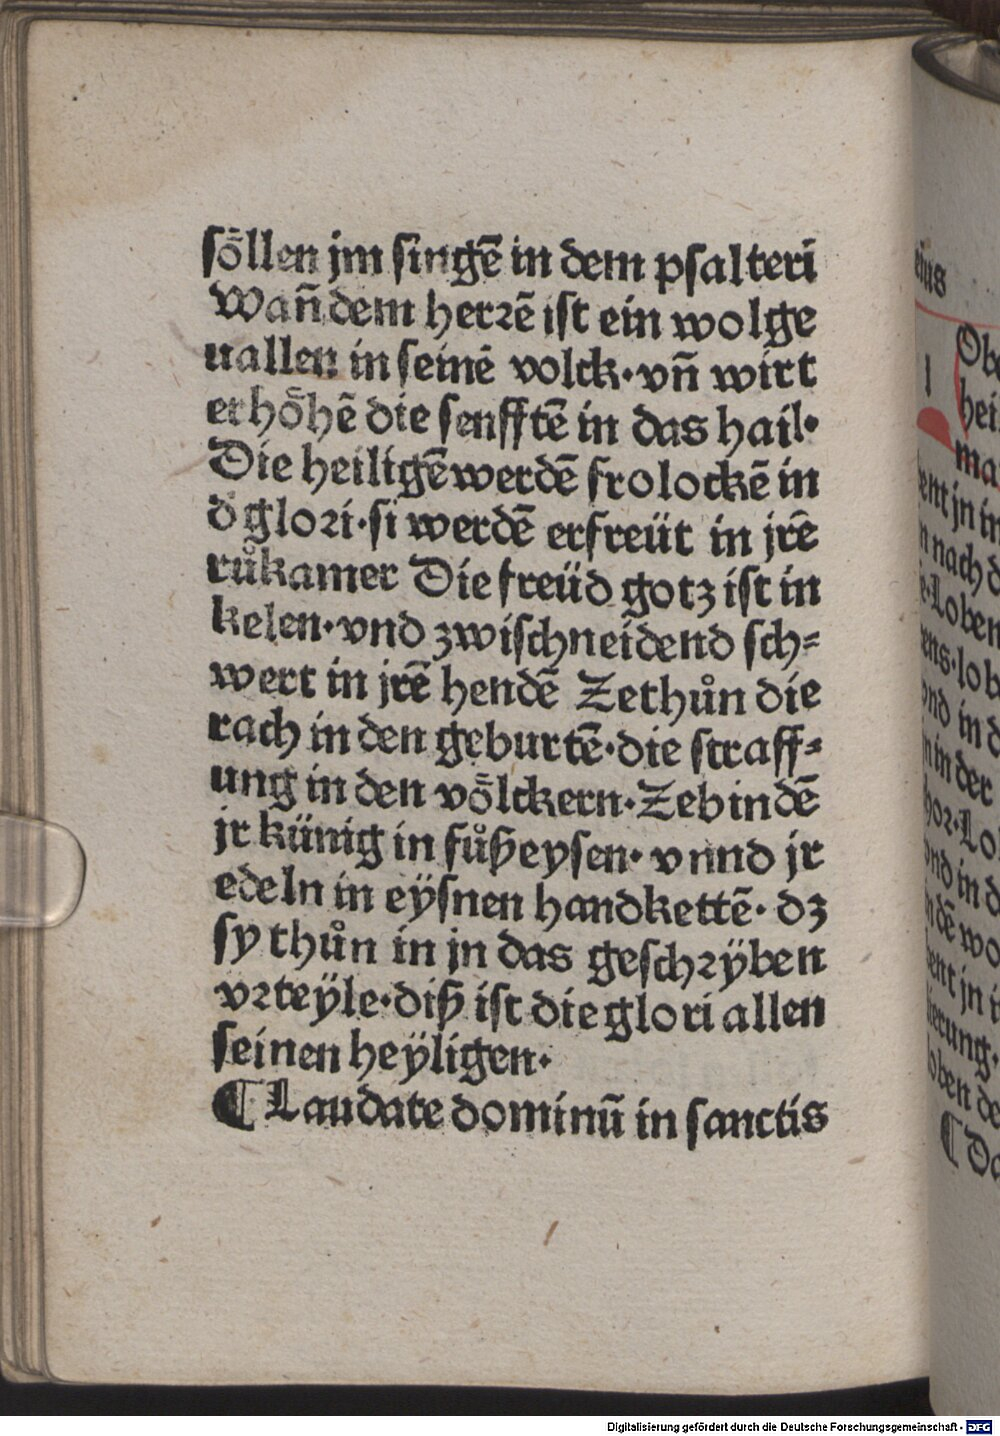 söllen jm singē in dem psalteri
Wañ dem herrē ist ein wolge
uallen in seinē volck·vñ wirt
erhöhē die senfftē in das hail·
Die heiligē werdē frolockē in
d̄ glori·si werdē erfreüt in jrē
růkamer Die freüd gotz ist in
kelen·vnd zwischneidend sch⸗
wert in jrē hendē Zethůn die
rach in den geburtē·die straff⸗
ung in den völckern·Zebindē
jr künig in fůßeysen·vnnd jr
edeln in eÿsnen handkettē·dz
sy thůn in jn das geschrÿben
vrteÿle·diß ist die glori allen
seinen heÿligen·
¶ Laudate dominū in sanctis
eius
Obe
hei
ma
ent jn in
n nach d
e·Loben
ens·lob
ond in d
n in der
hor·Lo
ond in d
n dē wo
ent jn i
ierung·
loben de
¶ Da
Digitalisierung gefördert durch die Deutsche Forschungsgemeinschaft - DFG